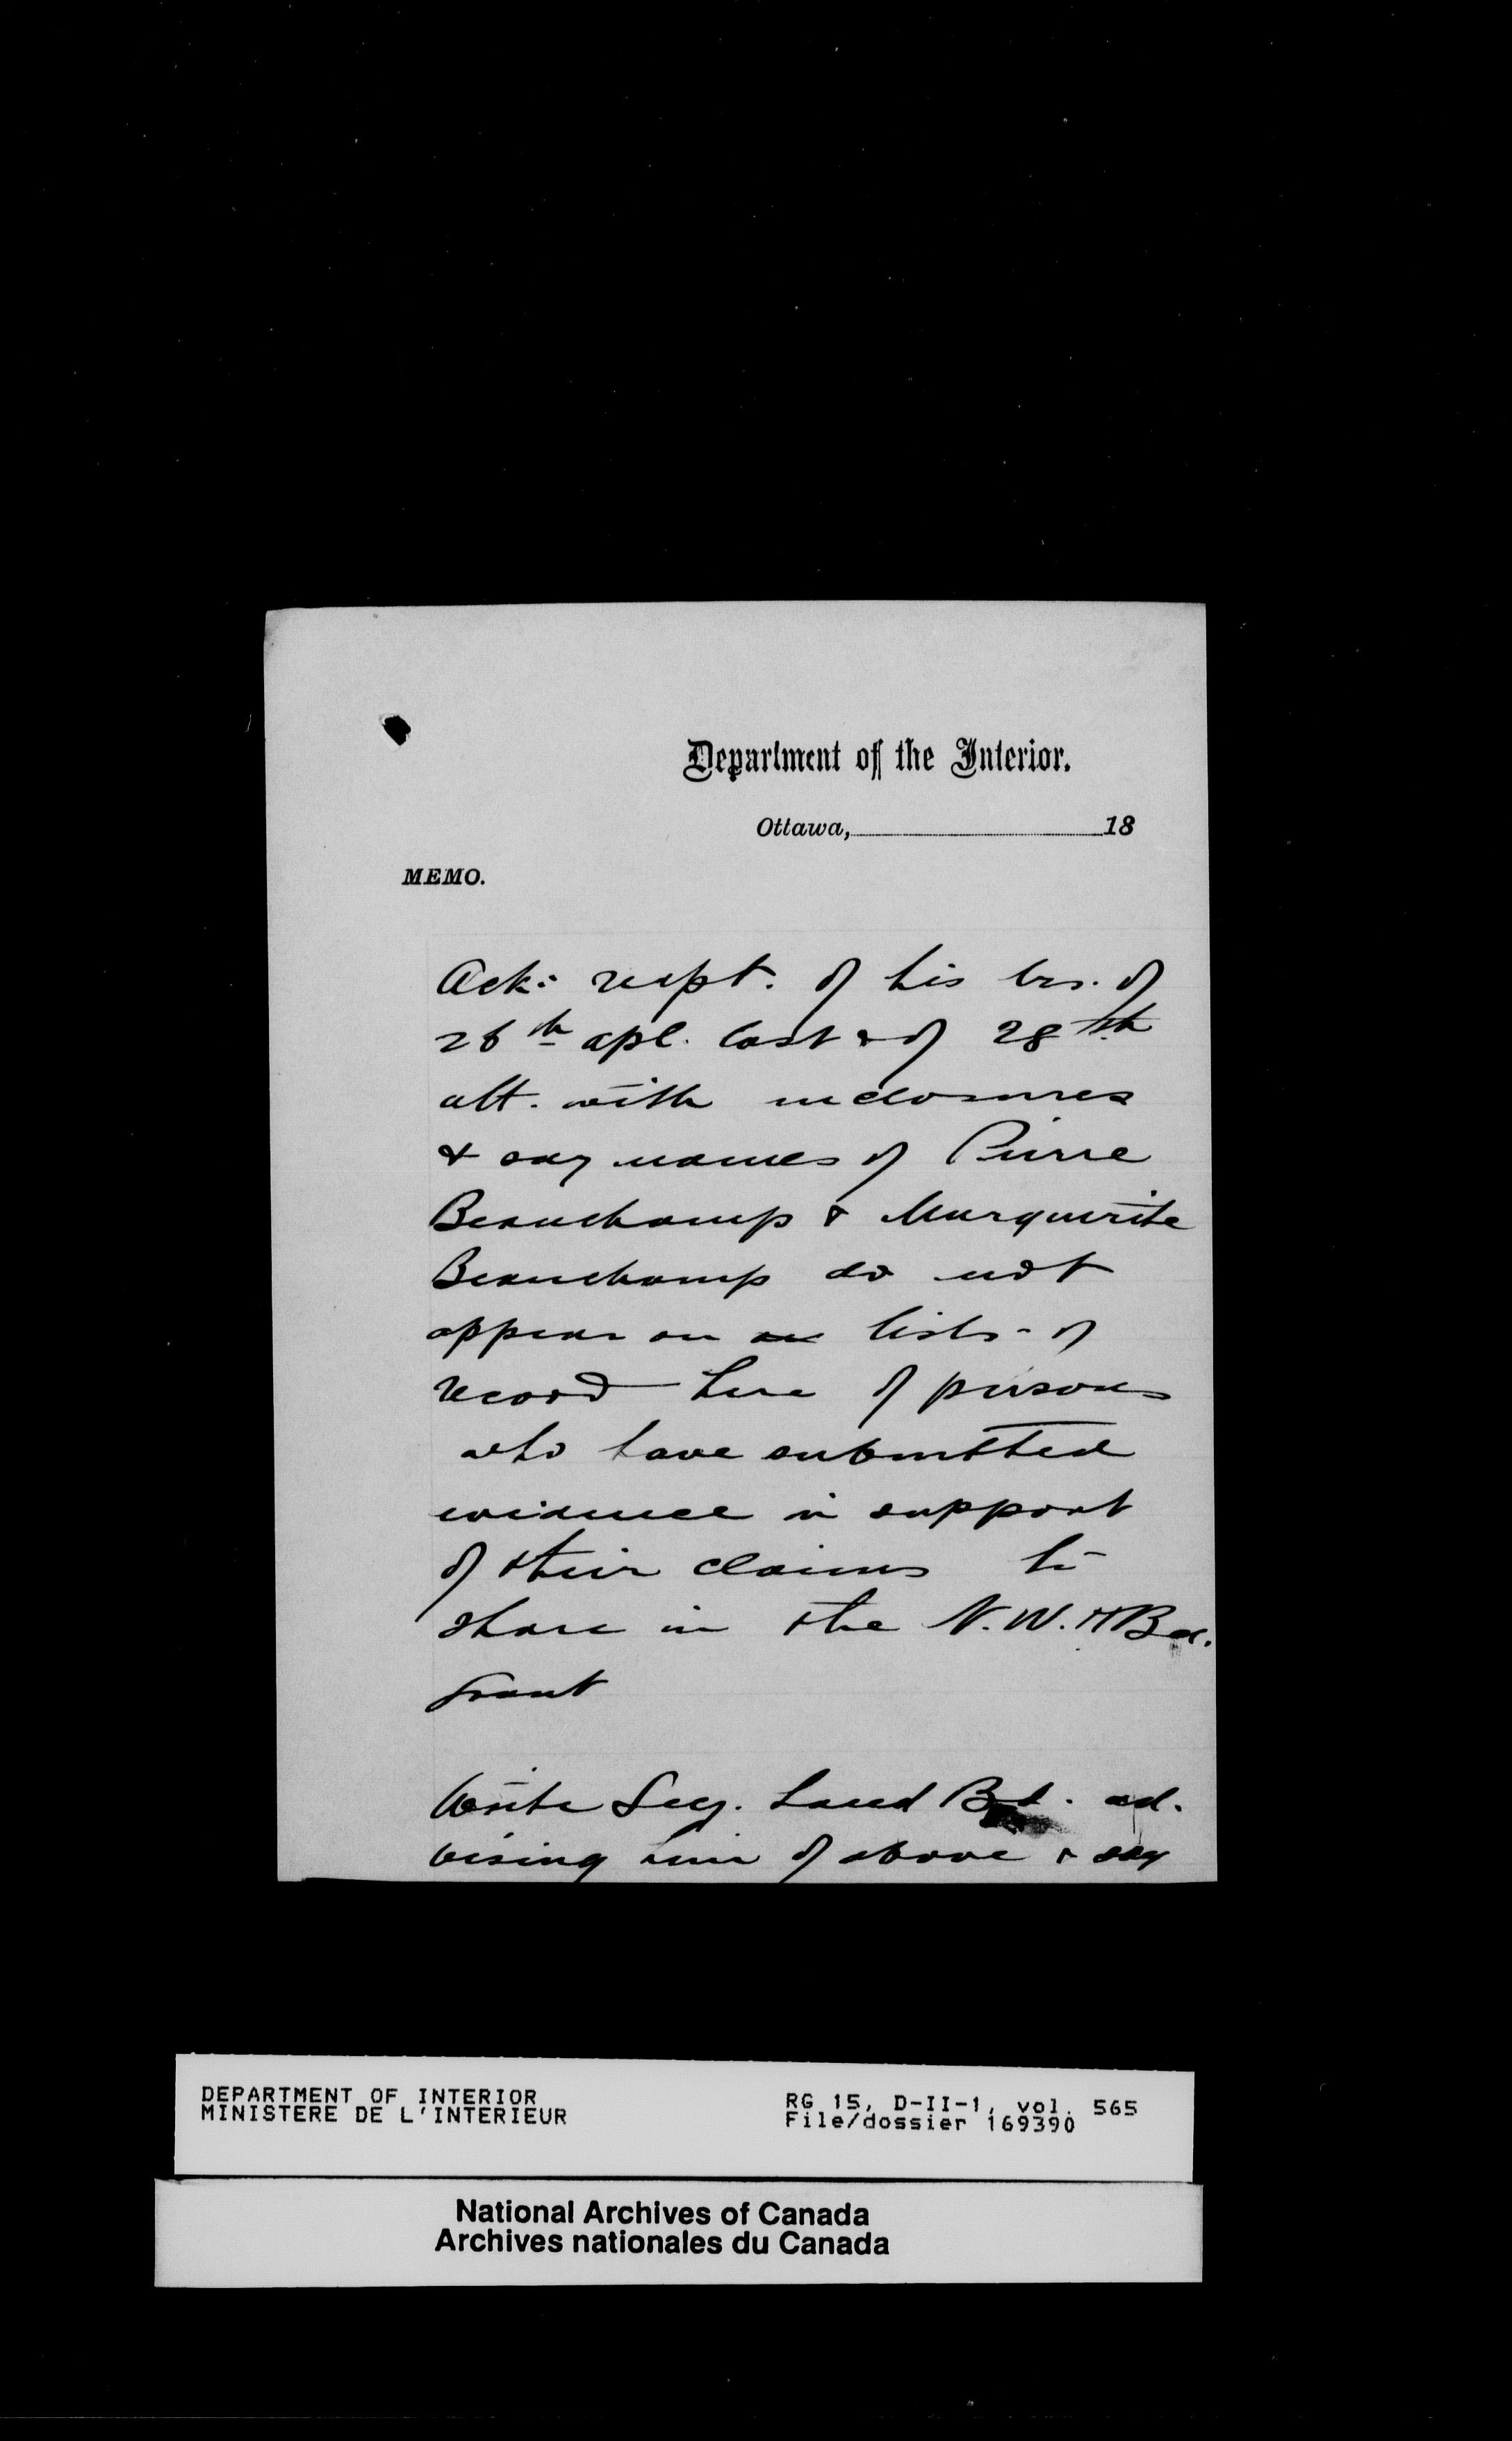 Department of the Interior.
Ottawa, 18
MEMO.
Ack: recpt. of his lrs. of
26th apl. last & of 28th
ult. with inclosures
& say names of Pierre
Beauchamp & Marguerite
Beauchamp do not
appear on lists of
record here of persons
who have submitted
evidence in support
of their claims to
share in the N.W. HBd.
Grant
Write Secy. Land Bd. ad-
vising him of above & say
DEPARTMENT OF INTERIOR
MINISTERE DE L'INTERIEUR
RG 15, D-II-1, vol. 565
File/dossier 169390
National Archives of Canada
Archives nationales du Canada